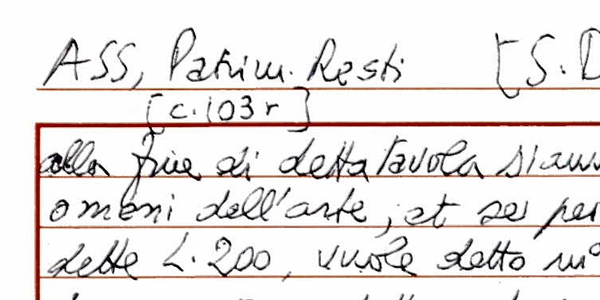 ASS, Patrim. Resti [S. D
[c.103r]
alla fine di detta tavola siano
omeni dell'arte, et se per
dette L. 200, vuole detto mº